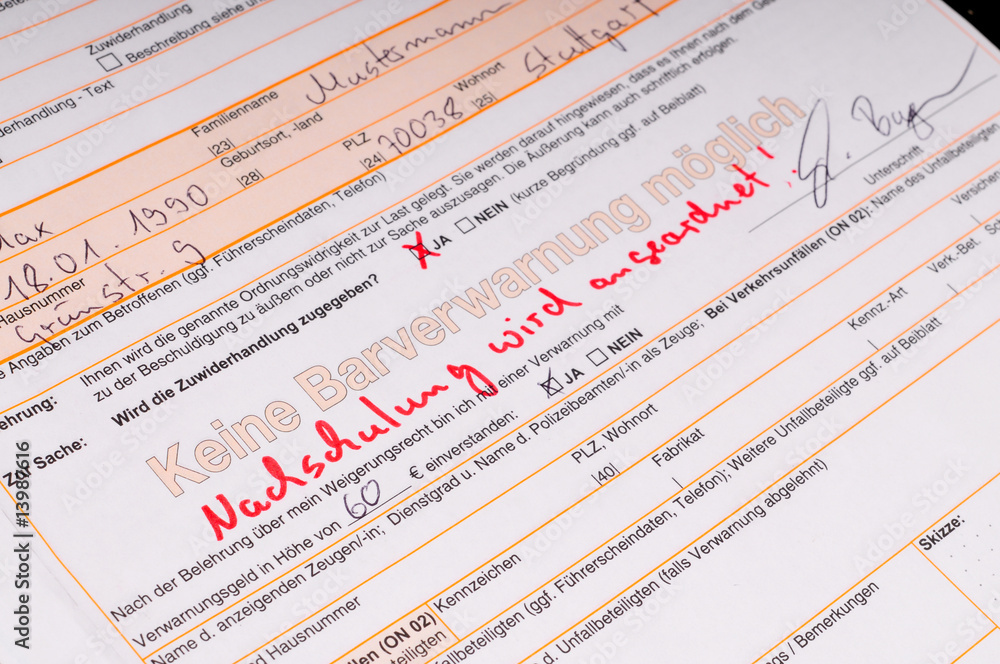 Zuwiderhandlung
Beschreibung siehe
Zuwiderhandlung
Familienname
Mustermann
derhandlung - Text
|23|
Geburtsort, -land
|28|
PLZ
|24| 70038
Wohnort
|25| Stuttgart
Max
18.01.1990
Hausnummer
Grünstr. 9
e Angaben zum Betroffenen (ggf. Führerscheindaten, Telefon)
Ihnen wird die genannte Ordnungswidrigkeit zur Last gelegt. Sie werden darauf hingewiesen, dass es Ihnen nach dem
zu der Beschuldigung zu äußern oder nicht zur Sache auszusagen. Die Äußerung kann auch schriftlich erfolgen.
ehrung:
Zur Sache:
Wird die Zuwiderhandlung zugegeben?
JA
NEIN (kurze Begründung ggf. auf Beiblatt)
Keine Barverwarnung möglich
Nachschulung wird angeordnet!
Unterschrift
Nach der Belehrung über mein Weigerungsrecht bin ich mit einer Verwarnung mit
Verwarnungsgeld in Höhe von 60 € einverstanden:
JA
NEIN
Name d. anzeigenden Zeugen/-in; Dienstgrad u. Name d. Polizeibeamten/-in als Zeuge; Bei Verkehrsunfällen (ON 02): Name des Unfallbeteiligten
nd Hausnummer
PLZ, Wohnort
|40|
Versicher
Kennzeichen
Fabrikat
Kennz.-Art
Verk.-Bet.
llen (ON 02)
teiligten
beteiligten (ggf. Führerscheindaten, Telefon); Weitere Unfallbeteiligte ggf. auf Beiblatt
d. Unfallbeteiligten (falls Verwarnung abgelehnt)
gs / Bemerkungen
Skizze:
Adobe Stock | #13987616